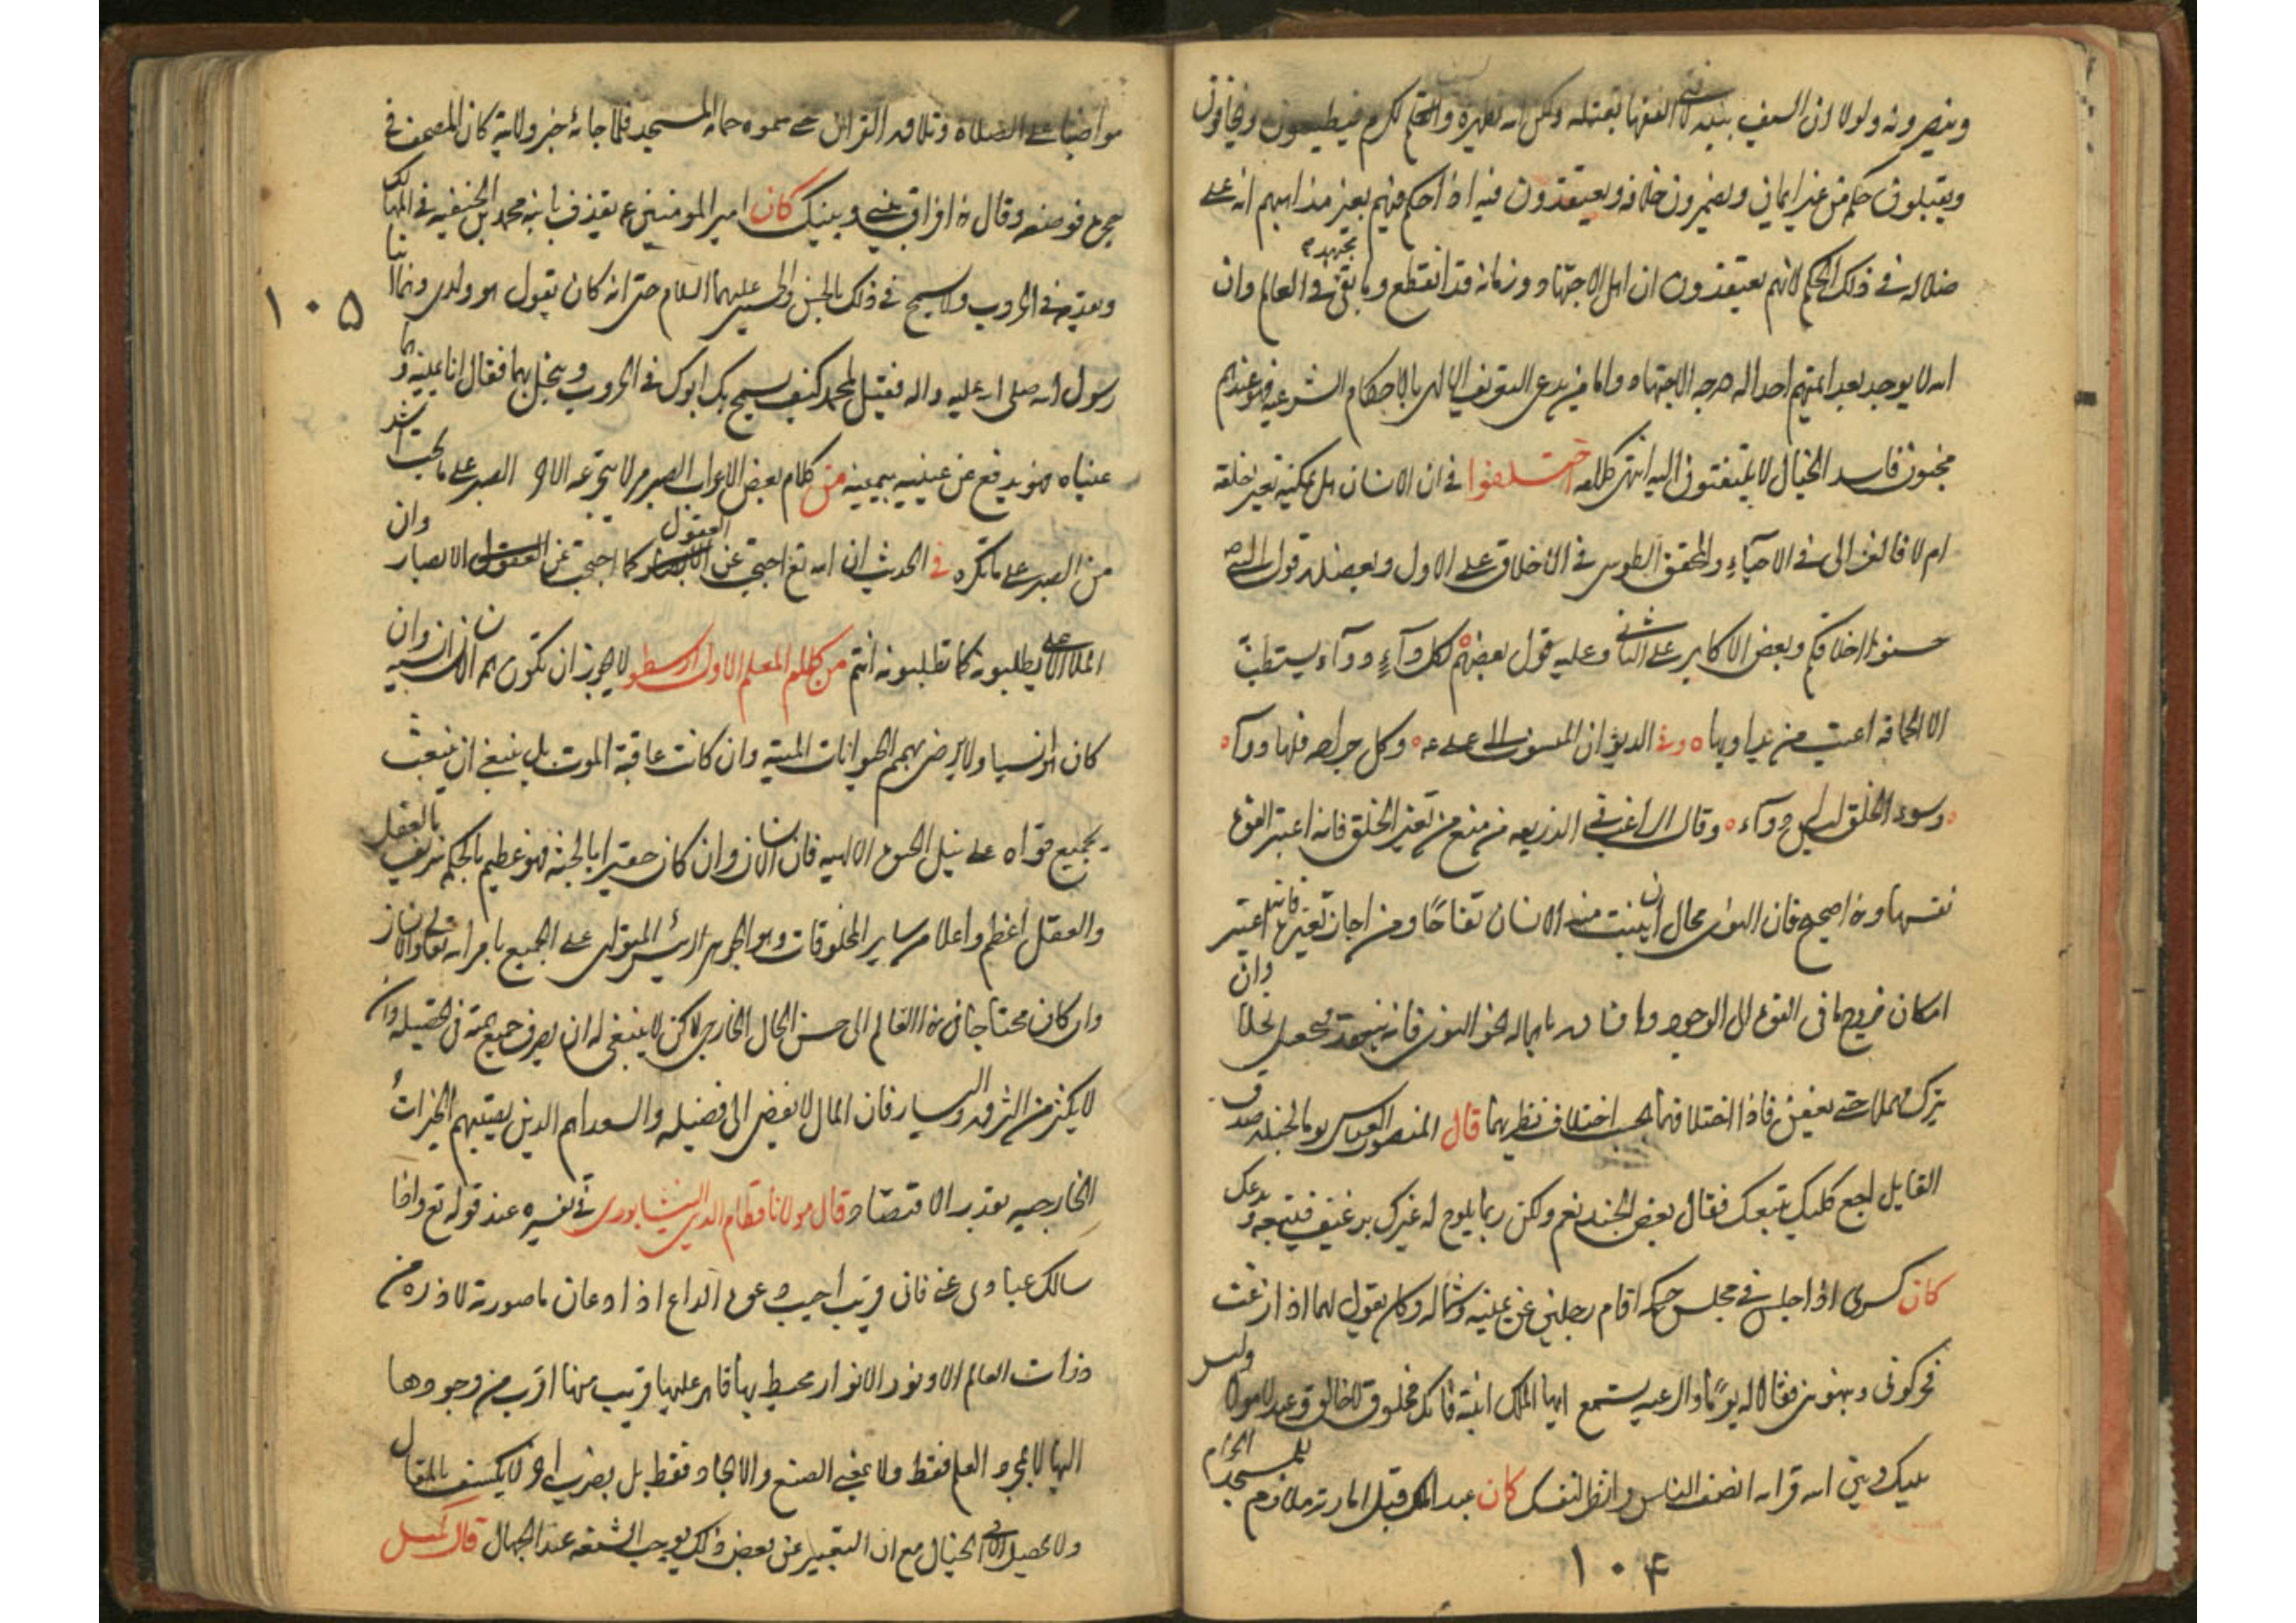 وينصرونه ولولا ان السيف بيده لافتى الفقهاء بقتله ولكن الله يظهره والحكم لكرم فيطيعون ويخافون
ويقبلون حكمه من غير ايمان ويضمرون خلافه ويعتقدون فيه اذا احكم فيهم بغير مذاهبهم انه على
ضلاله في ذلك الحكم لانهم يعتقدون ان اهل الاجتهاد وزمانه قد انقطع وما بقي مجتهد في العالم وان
الله لا يوجد بعد ائمتهم احدا له درجه الاجتهاد واما من يدعى التعريف الالهى بالاحكام الشرعيه فهو عندهم
مجنون فاسد الخيال لا يلتفتون اليه انتهى كلامه اختلفوا في ان الانسان هل يمكنه تغير خلقه
ام لا فالغزالى في الاحياء والمحقق الطوسى في الاخلاق على الاول ويعضده قول النبي
حسنوا اخلاقكم وبعض الاكابر على الثاني وعليه قول بعضهم لكل داء دواء يستطب
الا الحماقه اعيت من يداويها وفي الديوان المنسوب الى على ع وكل جراحه فلها دواء
وسوء الخلق ليس له دواء وقال الراغب في الذريعه من منع من تغير الخلق فانه اعتبر القوة
نفسها وهذا صحيح فان النوى محال ان ينبت منه الانسان تفاحا ومن اجاز تغيرها فانه اعتبر
امكان خروج ما في القوة الى الوجود وافساده باهماله نحو النوى فانه يتعهد فيجعل نخلا وان
يترك مهملا حتى يعفن فاذا اختلافهما بحسب اختلاف نظريهما قال المنصور العباسى يوما لجنده صدق
القايل اجع كلبك يتبعك فقال بعض الجند نعم ولكن ربما يلوح له غيرك برغيف فيتبعه ويدعك
كان كسرى اذا جلس في مجلس حكمه اقام رجلين عن يمينه وشماله وكان يقول لهما اذا زغت
فحركونى ونبهونى فقالا له يوما والرعيه يستمع ايها الملك انتبه فانك مخلوق لا خالق وعبد لا مولا وليس
بينك وبين الله قرابه انصف الناس وانظر لنفسك كان عبد الملك قبل امارته ملازم للمسجد الحرام
١٠۴
مواضبا على الصلاه وتلاوه القران حتى سموه حمامه المسجد فلما جائه خبر ولايه كان المصحف في
حجره فوضعه وقال هذا فراق بينى وبينك كان امير المومنين ع يقذف بابنه محمد بن الحنفيه في المهالك
ويقدمه في الحروب ولا يسمح في ذلك بالحسن والحسين عليهما السلام حتى انه كان يقول هو ولدى وهما ابنا
رسول الله صلى الله عليه واله فقيل لمحمد كيف يسمح بك ابوك في الحروب ويبخل بهما فقال انا يمينه وهما
عيناه فهو يدفع عن عينيه بيمينه من كلام بعض الاعراب الصبر مر لا يتجرعه الا حر الصبر على ما تحب اشد
من الصبر على ما تكره في الحديث ان الله تع احتجب عن العقول كما احتجب عن الابصار وان
الملا الاعلى يطلبونه كما تطلبونه انتم من كلام المعلم الاول ارسطو لا يجوز ان تكون همه الانسان انسيه وان
كان انسيا ولا يرضى بهمم الحيوانات الميته وان كانت عاقبة الموت بل ينبغى ان ينبعث
بجميع قواه على نيل الحيوة الالهيه فان الانسان وان كان حقيرا بالجثه فهو عظيم بالحكم شريف بالعقل
والعقل اعظم واعلا من ساير المخلوقات وهو الجوهر الرئيس المتولى على الجميع بامر الله تعالى والانسان
وان كان محتاجا في هذا العالم الى حسن الحال الخارجى لكن لا ينبغى له ان يصرف جميع همته في تحصيله وان
لا يكثر من الثروه واليسار فان المال لا يفضى الى فضيله والسعداء هم الذين يصيبهم الخيرات
الخارجيه بقدر الاقتصاد قال مولانا نظام الدين النيشابورى في تفسيره عند قوله تع واذا
سالك عبادى عنى فانى قريب اجيب دعوة الداع اذا دعان ما صورته لا ذره من
ذرات العالم الا ونور الانوار محيط بها قاهر عليها قريب منها اقرب من وجودها
اليها لا بمجرد العلم فقط ولا بمعنى الصنع والايجاد فقط بل بضرب اخر لا يكشف بالمقال
ولا يحصيل الا في الخيال مع ان التعبير عن بعض ذلك يوجب الشنعه عند الجهال قال كميل
١٠۵